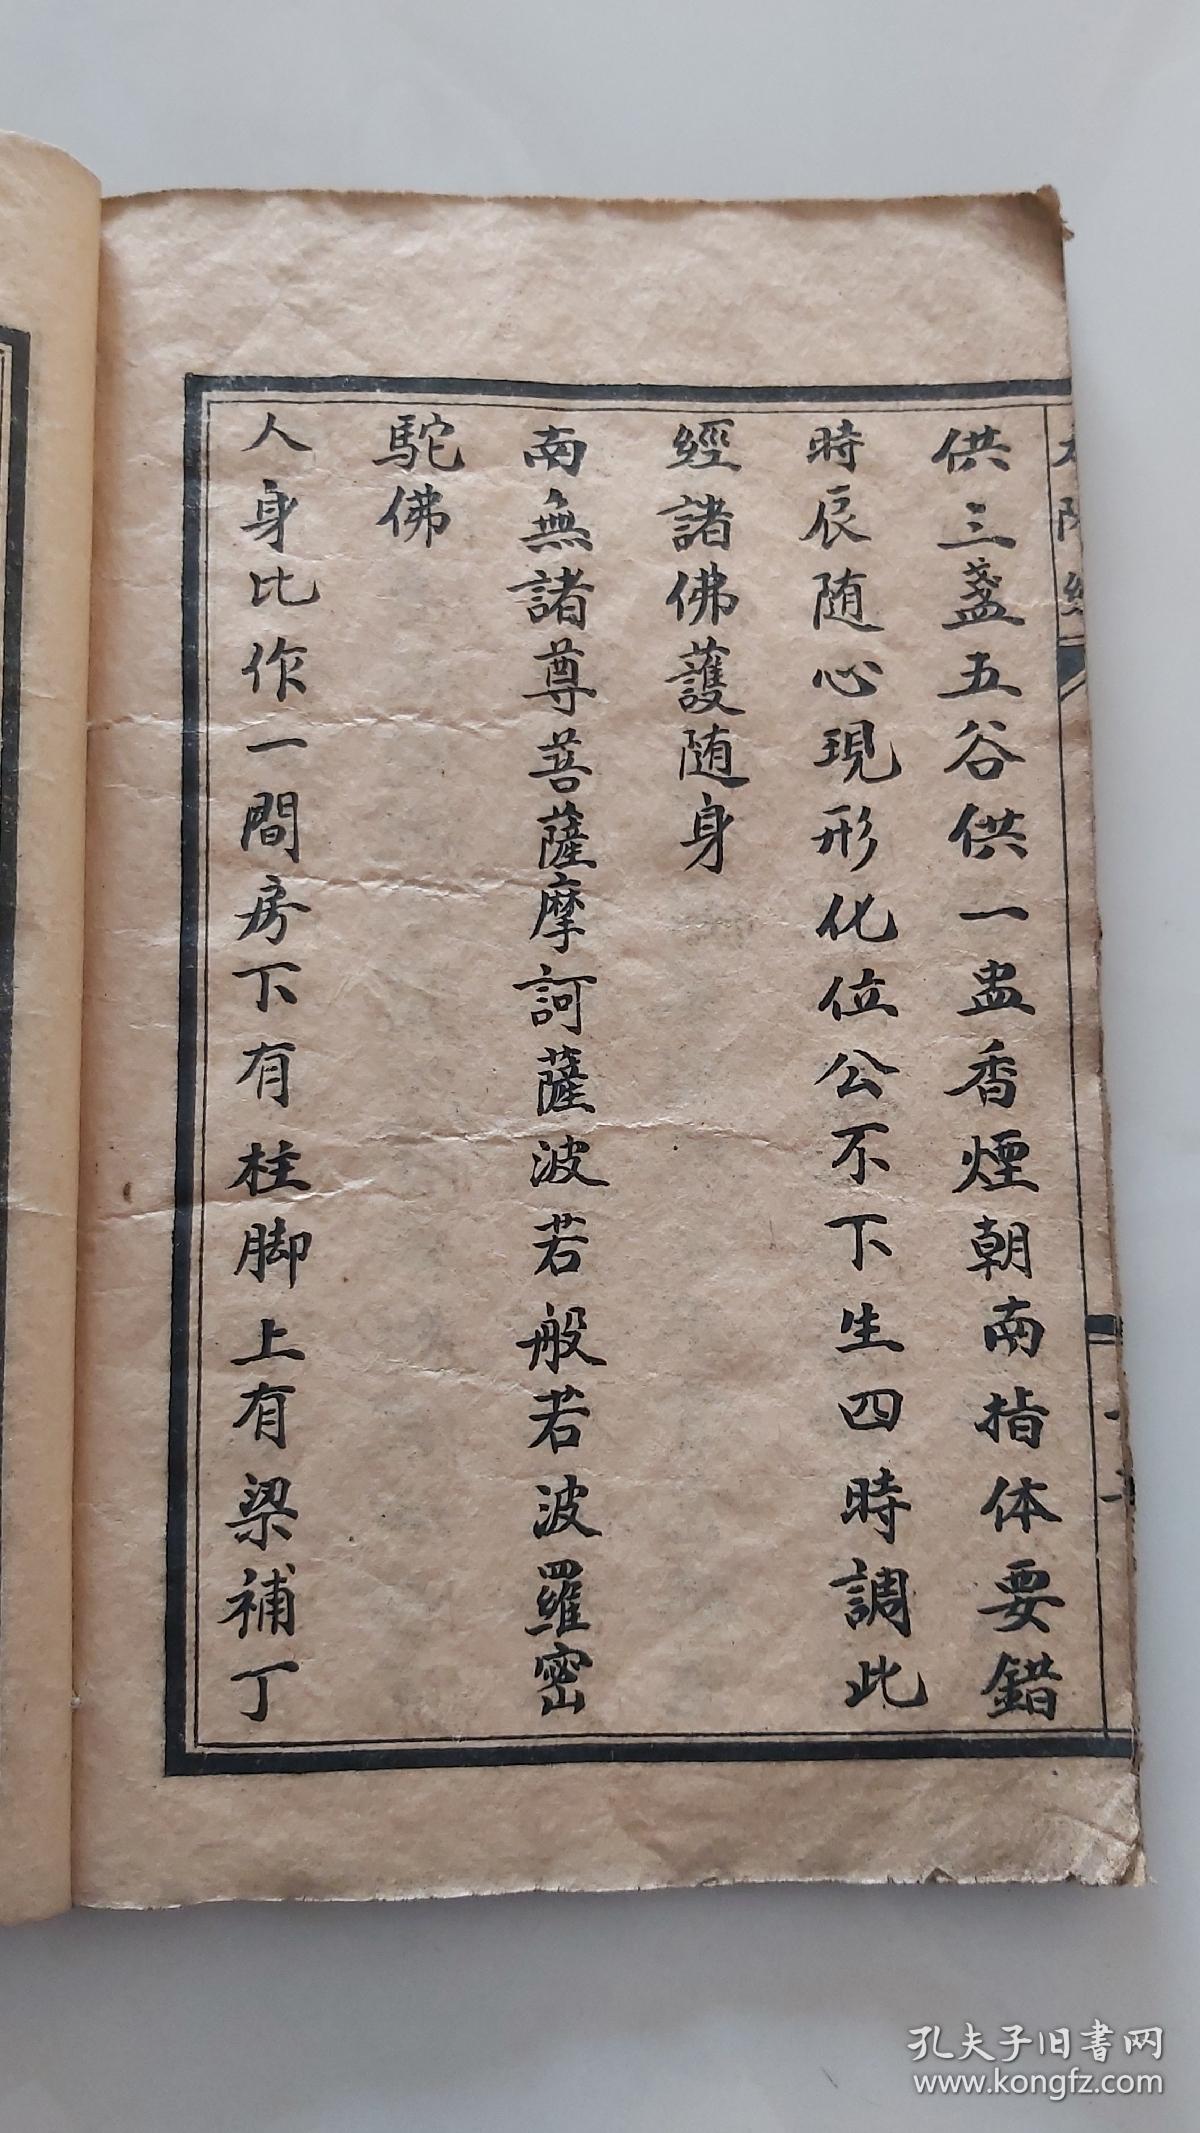 供三盞五谷供一盅香煙朝南指体要錯
時辰随心現形化位公不下生四時調此
經諸佛護随身
南無諸尊菩薩摩訶薩波若般若波羅密
駝佛
人身比作一間房下有柱脚上有梁補丁
孔夫子旧書网
www.kongfz.com